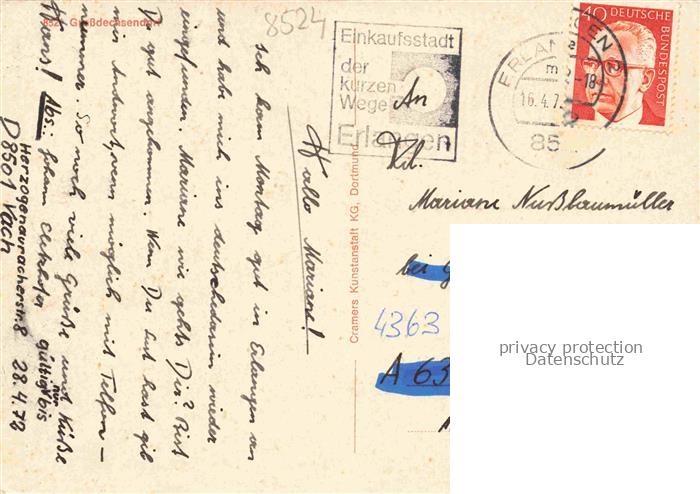 852 Großdechsendorf
8524
Hallo Mariane!
Ich kam Montag gut in Erlangen an
und habe mich ins deutschedasein wieder
eingefunden. Mariane wie gehts Dir? Bist
Du gut angekommen. Wenn Du Lust hast gib
mir Antwort, wenn möglich mit Telfon-
nummer. So noch viele Grüße und Küße
Hans! Abs.: Johann
gültig nur bis
Herzogenauracherstr. 8 28.4.72
D 8501 Vach
Cramers Kunstanstalt KG, Dortmund
Einkaufsstadt
der
kurzen
Wege
Erlangen
ERLANGEN 2
16.4.7
-18
85
40 DEUTSCHE
BUNDESPOST
An
Frl.
Mariane Nußbaumüller
bei G
4363
A 63
privacy protection
Datenschutz